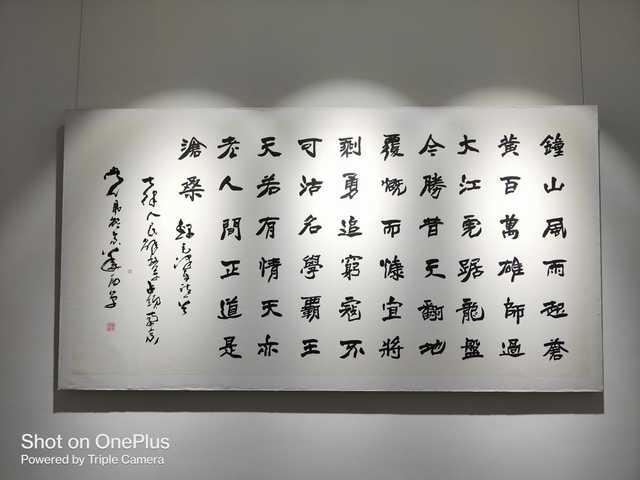 鐘山風雨起蒼
黃百萬雄師過
大江虎踞龍盤
今勝昔天翻地
覆慨而慷宜將
剩勇追窮寇不
可沽名學霸王
天若有情天亦
老人間正道是
滄桑 錄毛澤東詩
七律人民解放軍占領南京
Shot on OnePlus
Powered by Triple Camera